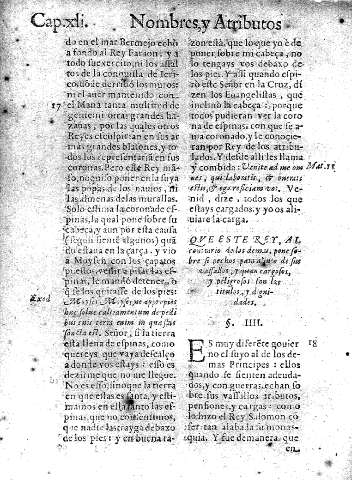 Cap.xli. Nombres, y Atributos
do en el mar Bermejo echò
a fondo al Rey Faraon, y a
todo su exercito, ni los assaltos
de la conquista de Ierico
dõde derribò los muros:
ni el auer mantenido con
17
el Manà tanta multitud de
gente, ni otras grandes hazañas,
por las quales otros
Reyes esculpieran en sus armas
grandes blasones, y todos
los representaria en sus
coronas. Pero este Rey mio,
no quiso poner en la suya
las popas de los nauios, ni
las almenas de las murallas.
Solo estima la corona de espinas,
la qual pone sobre su
cabeça, y aun por esta causa
(segun siente algunos) quã
do estaua en la çarça, y vio
a Moysen con los çapatos
puestos, venir a pisar las espinas,
le mandò detener, o
q̃ se los quitasse de los pies
Exod
Moyses Moyses, ne appropies
huc, solue calceamentum de pedibus
tuis: terra enim in qua stas
sancta est. Señor, si la tierra
està llena de espinas, como
quereys, que vaya descalço
a donde vos estays: esso es
dezirme que no me llegue.
No es esso, sino que la tierra
en que ellas estan es santa, y estimamos
en ella tanto las espinas,
que no consentimos,
que nadie las trayga debaxo
de los pies: y en buena razon
està, que lo que yo è de
poner sobre mi cabeça, no
lo tengays vos debaxo de
los pies. Y assi quando espirò
este Señor en la Cruz, dizen
los Euangelistas, que
inclinò la cabeça: porque
todos pudieran ver la corona
de espinas, con que se auia
coronado, y le conociessen
por Rey de los atributos.
Y desde alli les llama
y combida: Venite ad me omnes,
Mat. 11
qui laboratis, & onerati
estis, & ego reficiam vos. Venid,
dize, todos los que
estays cargados, y yo os aliuiare
la carga.
QVE ESTE REY, AL
contrario de los demas, pone sobre
si pechos para aliuio de sus
vassallos, y quan cargosos,
y peligrosos son los
titulos, y dignidades.
§. IIII.
ES muy diferẽte gouierno
18
el suyo al de los demas
Principes: ellos
quando se sienten adeudados,
y con guerras, echan sobre
sus vassallos atributos,
pensiones, y cargas: como
lo hizo el Rey Salomon cõ
ser tan alabada su monarquia.
Y fue de manera, que